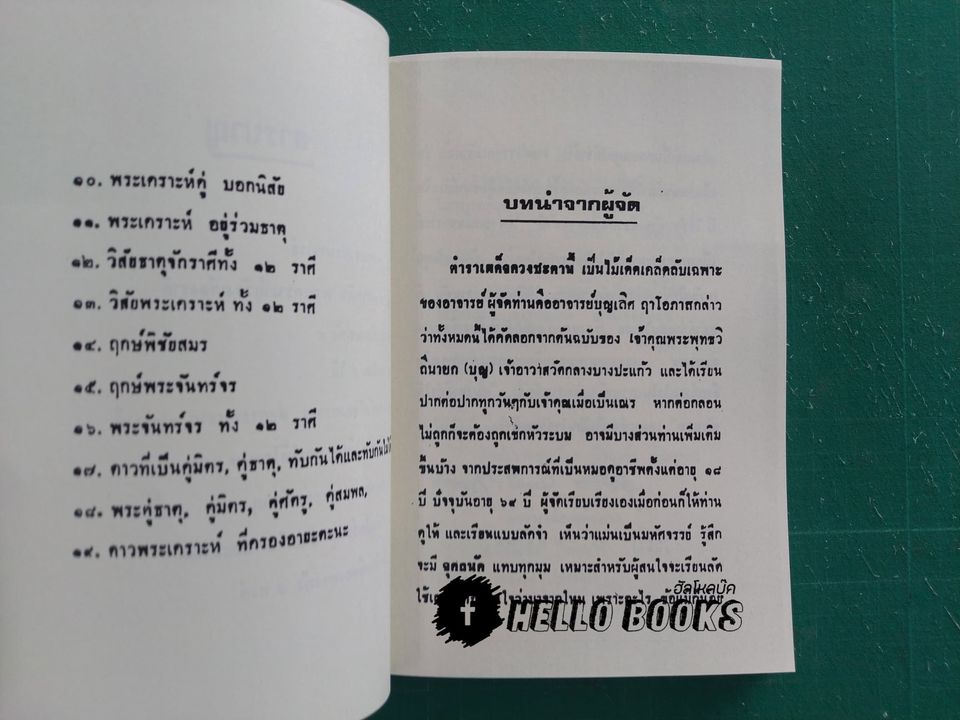 ๑๐. พระเคราะห์คู่ บอกนิสัย
๑๑. พระเคราะห์ อยู่ร่วมธาตุ
๑๒. วิสัยธาตุจักราศีทั้ง ๑๒ ราศี
๑๓. วิสัยพระเคราะห์ ทั้ง ๑๒ ราศี
๑๔. ฤกษ์พิชัยสมร
๑๕. ฤกษ์พระจันทร์จร
๑๖. พระจันทร์จร ทั้ง ๑๒ ราศี
๑๗. ดาวที่เป็นคู่มิตร, คู่ธาตุ, ทับกันได้และทับกันไม่
๑๘. พระคู่ธาตุ, คู่มิตร, คู่ศัตรู, คู่สมพล,
๑๙. ดาวพระเคราะห์ ที่ครองอายะตะนะ
บทนำจากผู้จัด
ตำราเสด็จดวงชะตานี้ เป็นไม้เด็ดเคล็ดลับเฉพาะ
ของอาจารย์ ผู้จัดท่านคืออาจารย์บุญเลิศ ฤาโอภาสกล่าว
ว่าทั้งหมดนี้ได้คัดลอกจากต้นฉบับของ เจ้าคุณพระพุทธวิ
ถีนายก (บุญ) เจ้าอาวาสวัดกลางบางปะแก้ว และได้เรียน
ปากต่อปากทุกวันๆกับเจ้าคุณเมื่อเป็นเณร หากต่อกลอน
ไม่ถูกก็จะต้องถูกเขกหัวระบม อาจมีบางส่วนท่านเพิ่มเติม
ขึ้นบ้าง จากประสพการณ์ที่เป็นหมอดูอาชีพตั้งแต่อายุ ๑๘
ปี ปัจจุบันอายุ ๖๙ ปี ผู้จัดเรียบเรียงเองเมื่อก่อนก็ให้ท่าน
ดูให้ และเรียนแบบลักจำ เห็นว่าแม่นเป็นมหัศจรรย์ รู้สึก
จะมี จุดถนัด แทบทุกมุม เหมาะสำหรับผู้สนใจจะเรียนลัด
ฮัลโหลบุ๊ค
HELLO BOOKS